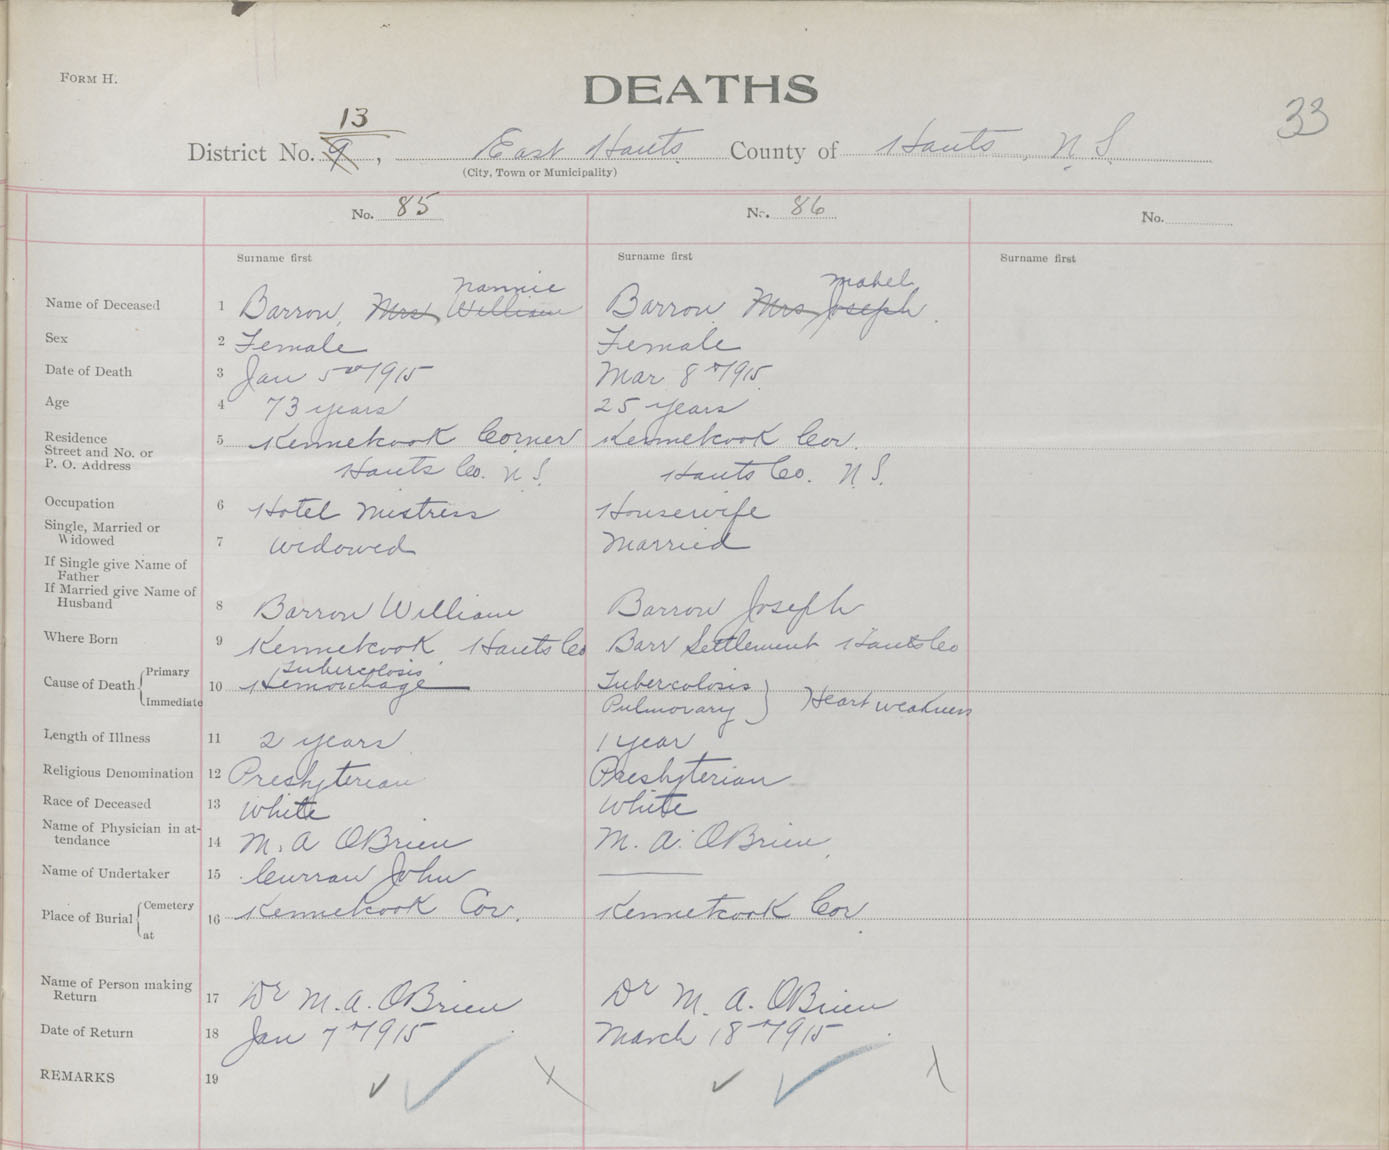 FORM H.
DEATHS
33
13
District No. 9, East Hants County of Hants, N.S.
(City, Town or Municipality)
No. 85 No. 86 No.
Surname first Surname first Surname first
Nannie Mabel
Name of Deceased 1 Barron, Mrs William Barron Mrs Joseph.
Sex 2 Female Female
Date of Death 3 Jan 5th 1915 Mar 8th 1915
Age 4 73 years 25 years
Residence 5 Kennetcook Corner Kennetcook Cor.
Street and No. or
P. O. Address Hants Co. N.S. Hants Co. N.S.
Occupation 6 Hotel Mistress Housewife
Single, Married or
Widowed 7 Widowed Married
If Single give Name of
Father
If Married give Name of
Husband 8 Barron William Barron Joseph
Where Born 9 Kennetcook Hants Co Barr Settlement Hants Co
Primary Tubercolosis
Cause of Death 10 Hemorrhage Tubercolosis
Immediate Pulmonary Heart weakness
Length of Illness 11 2 years 1 year
Religious Denomination 12 Presbyterian Presbyterian
Race of Deceased 13 White White
Name of Physician in at-
tendance 14 M. A OBrien M. A. OBrien
Name of Undertaker 15 Curran John
Cemetery
Place of Burial 16 Kennetcook Cor. Kennetcook Cor.
at
Name of Person making
Return 17 Dr M. A. OBrien Dr M. A. OBrien
Date of Return 18 Jan 7th 1915 March 18th 1915
REMARKS 19